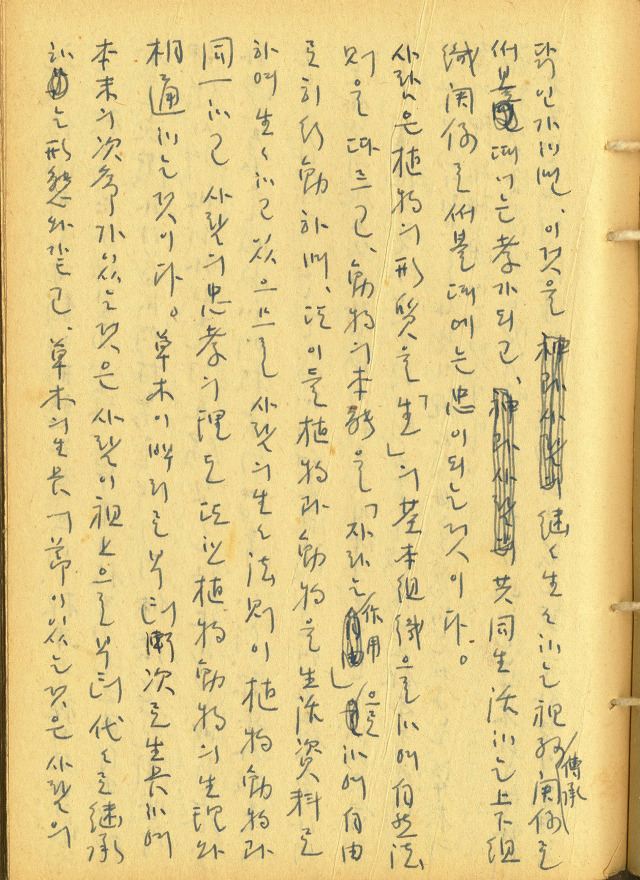 적인가 하면, 이것을 繼々生々하는 祖孫傳承關係로
써 볼 때에는 孝가 되고, 共同生活하는 上下組
織關係로 써 볼 때에는 忠이 되는 것이다.
사람은 植物의 形質을 「生」의 基本組織으로 하여 自然法
則을 따르고, 動物의 本能을 「자라는 作用」으로 하여 自由
로히 行動하며, 또 이들 植物과 動物을 生活資料로
하여 生々하고 있으므로 사람의 生々法則이 植物動物과
同一하고 사람의 忠孝의 理도 또한 植物動物의 生理와
相通하는 것이다. 草木이 뿌리로부터 漸次로 生長하여
本末의 次序가 있는 것은 사람이 祖上으로부터 代々로 繼承
하는 形態와 같고, 草木의 生長에 節이 있는 것은 사람의